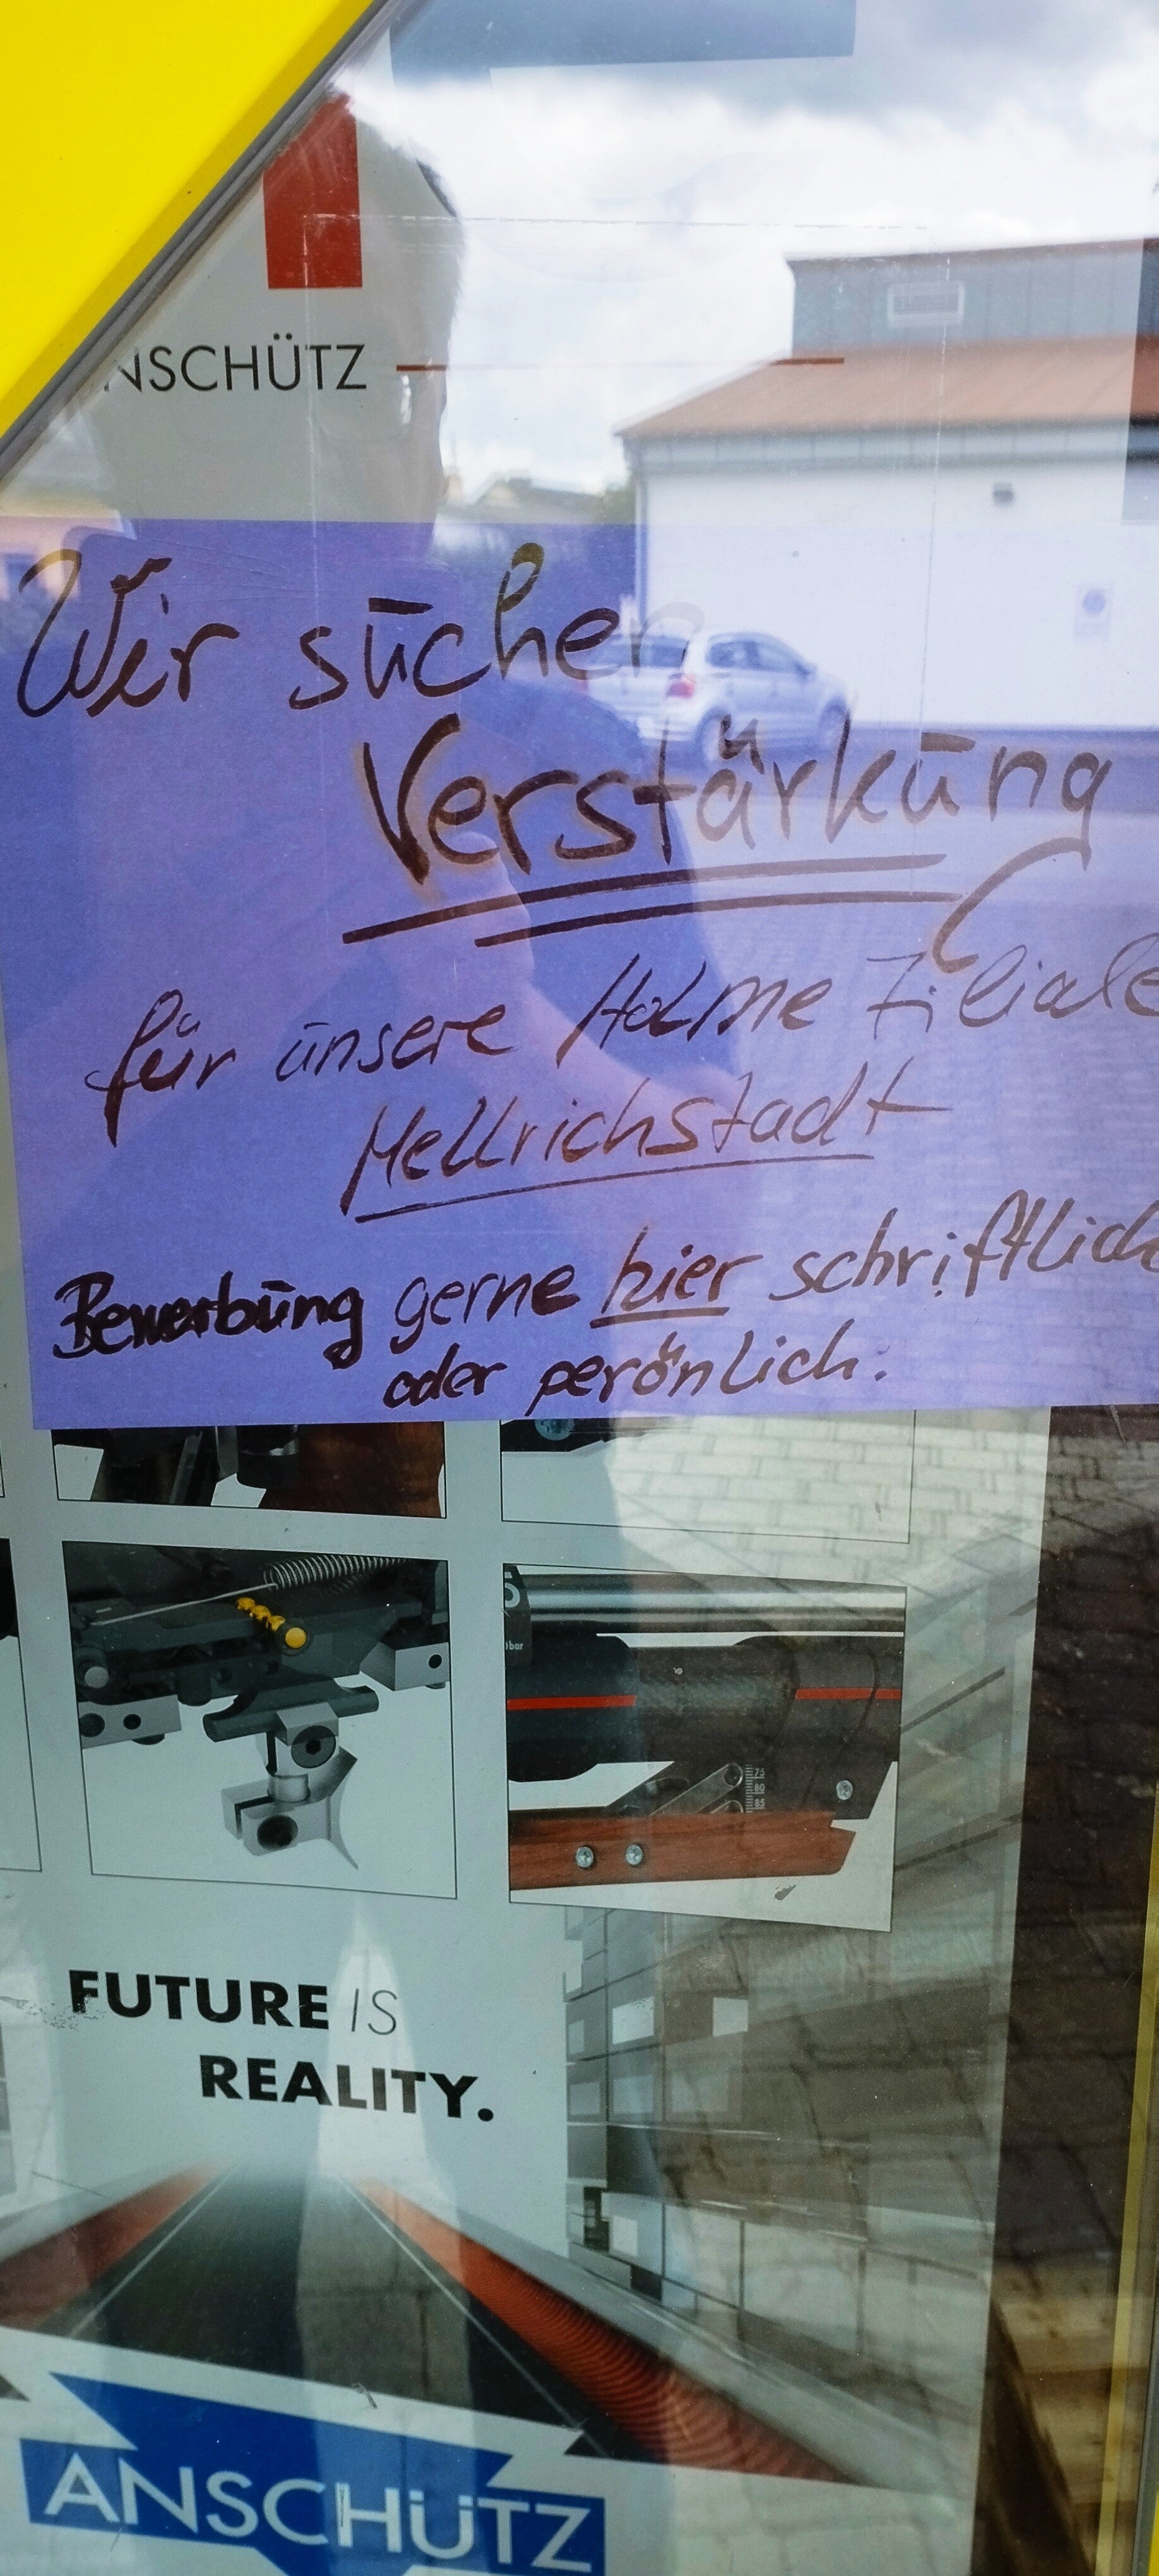 NSCHÜTZ
Wir suchen
Verstärkung
für unsere HOLME Filiale
Mellrichstadt
Bewerbung gerne hier schriftlich
oder perönlich.
5
bar
75
80
85
FUTURE IS
REALITY.
ANSCHÜTZ